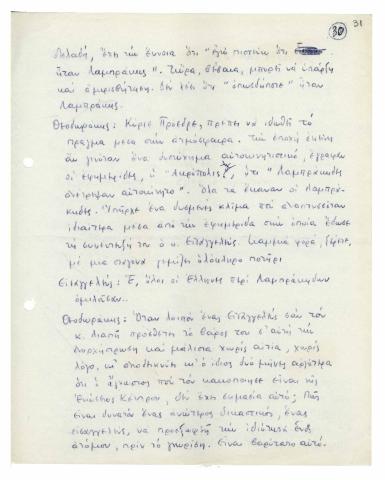 30 31
δηλαδή, έτσι την έννοια ότι "εγώ πιστεύω ότι
ήταν Λαμπράκης". Τώρα, βέβαια, μπορεί να υπάρξη
και αμφισβήτηση. Δεν λέει ότι "οπωσδήποτε" ήταν
Λαμπράκης.
Θεοδωράκης: Κύριε Πρόεδρε, πρέπει να ιδωθή το
πράγμα μέσα στην ατμόσφαιρα. Την εποχή εκείνη
αν γινόταν ένα δυστύχημα αυτοκινητιστικό, έγραφαν
οι εφημερίδες, η "Ακρόπολις", ότι "Λαμπράκηδες
ανέτρεψαν αυτοκίνητο". Όλα τα έκαναν οι Λαμπρά-
κηδες. Υπήρχε ένα δυσμενές κλίμα που αναπτυσσόταν
ιδιαίτερα μέσα από την εφημερίδα στην οποία έδωσε
τη συνέντευξή του ο κ. Εισαγγελεύς. Καμμιά φορά, ξέρετε,
με μια σταγόνα γεμίζει ολόκληρο ποτήρι
Εισαγγελεύς: Ε, όλοι οι Έλληνες περί Λαμπράκηδων
ομιλούσαν..
Θεοδωράκης: Όταν λοιπόν ένας Εισαγγελεύς σαν τον
κ. προσθέτη το βάρος του σ' αυτή την
και μάλιστα χωρίς αιτία, χωρίς
λόγο, κι' αποδεικνύει κι' ο ίδιος δυο μήνες αργότερα
ότι ο άγνωστος που τον κακοποίησε είναι της
Ενώσεως Κέντρου, δεν έχει σημασία αυτό; Πώς
είναι δυνατόν ένας ανώτερος δικαστικός, ένας
εισαγγελεύς, να προεξοφλή την ιδιότητα ενός
ατόμου, πριν το γνωρίση. Είναι βαρύτατο αυτό.